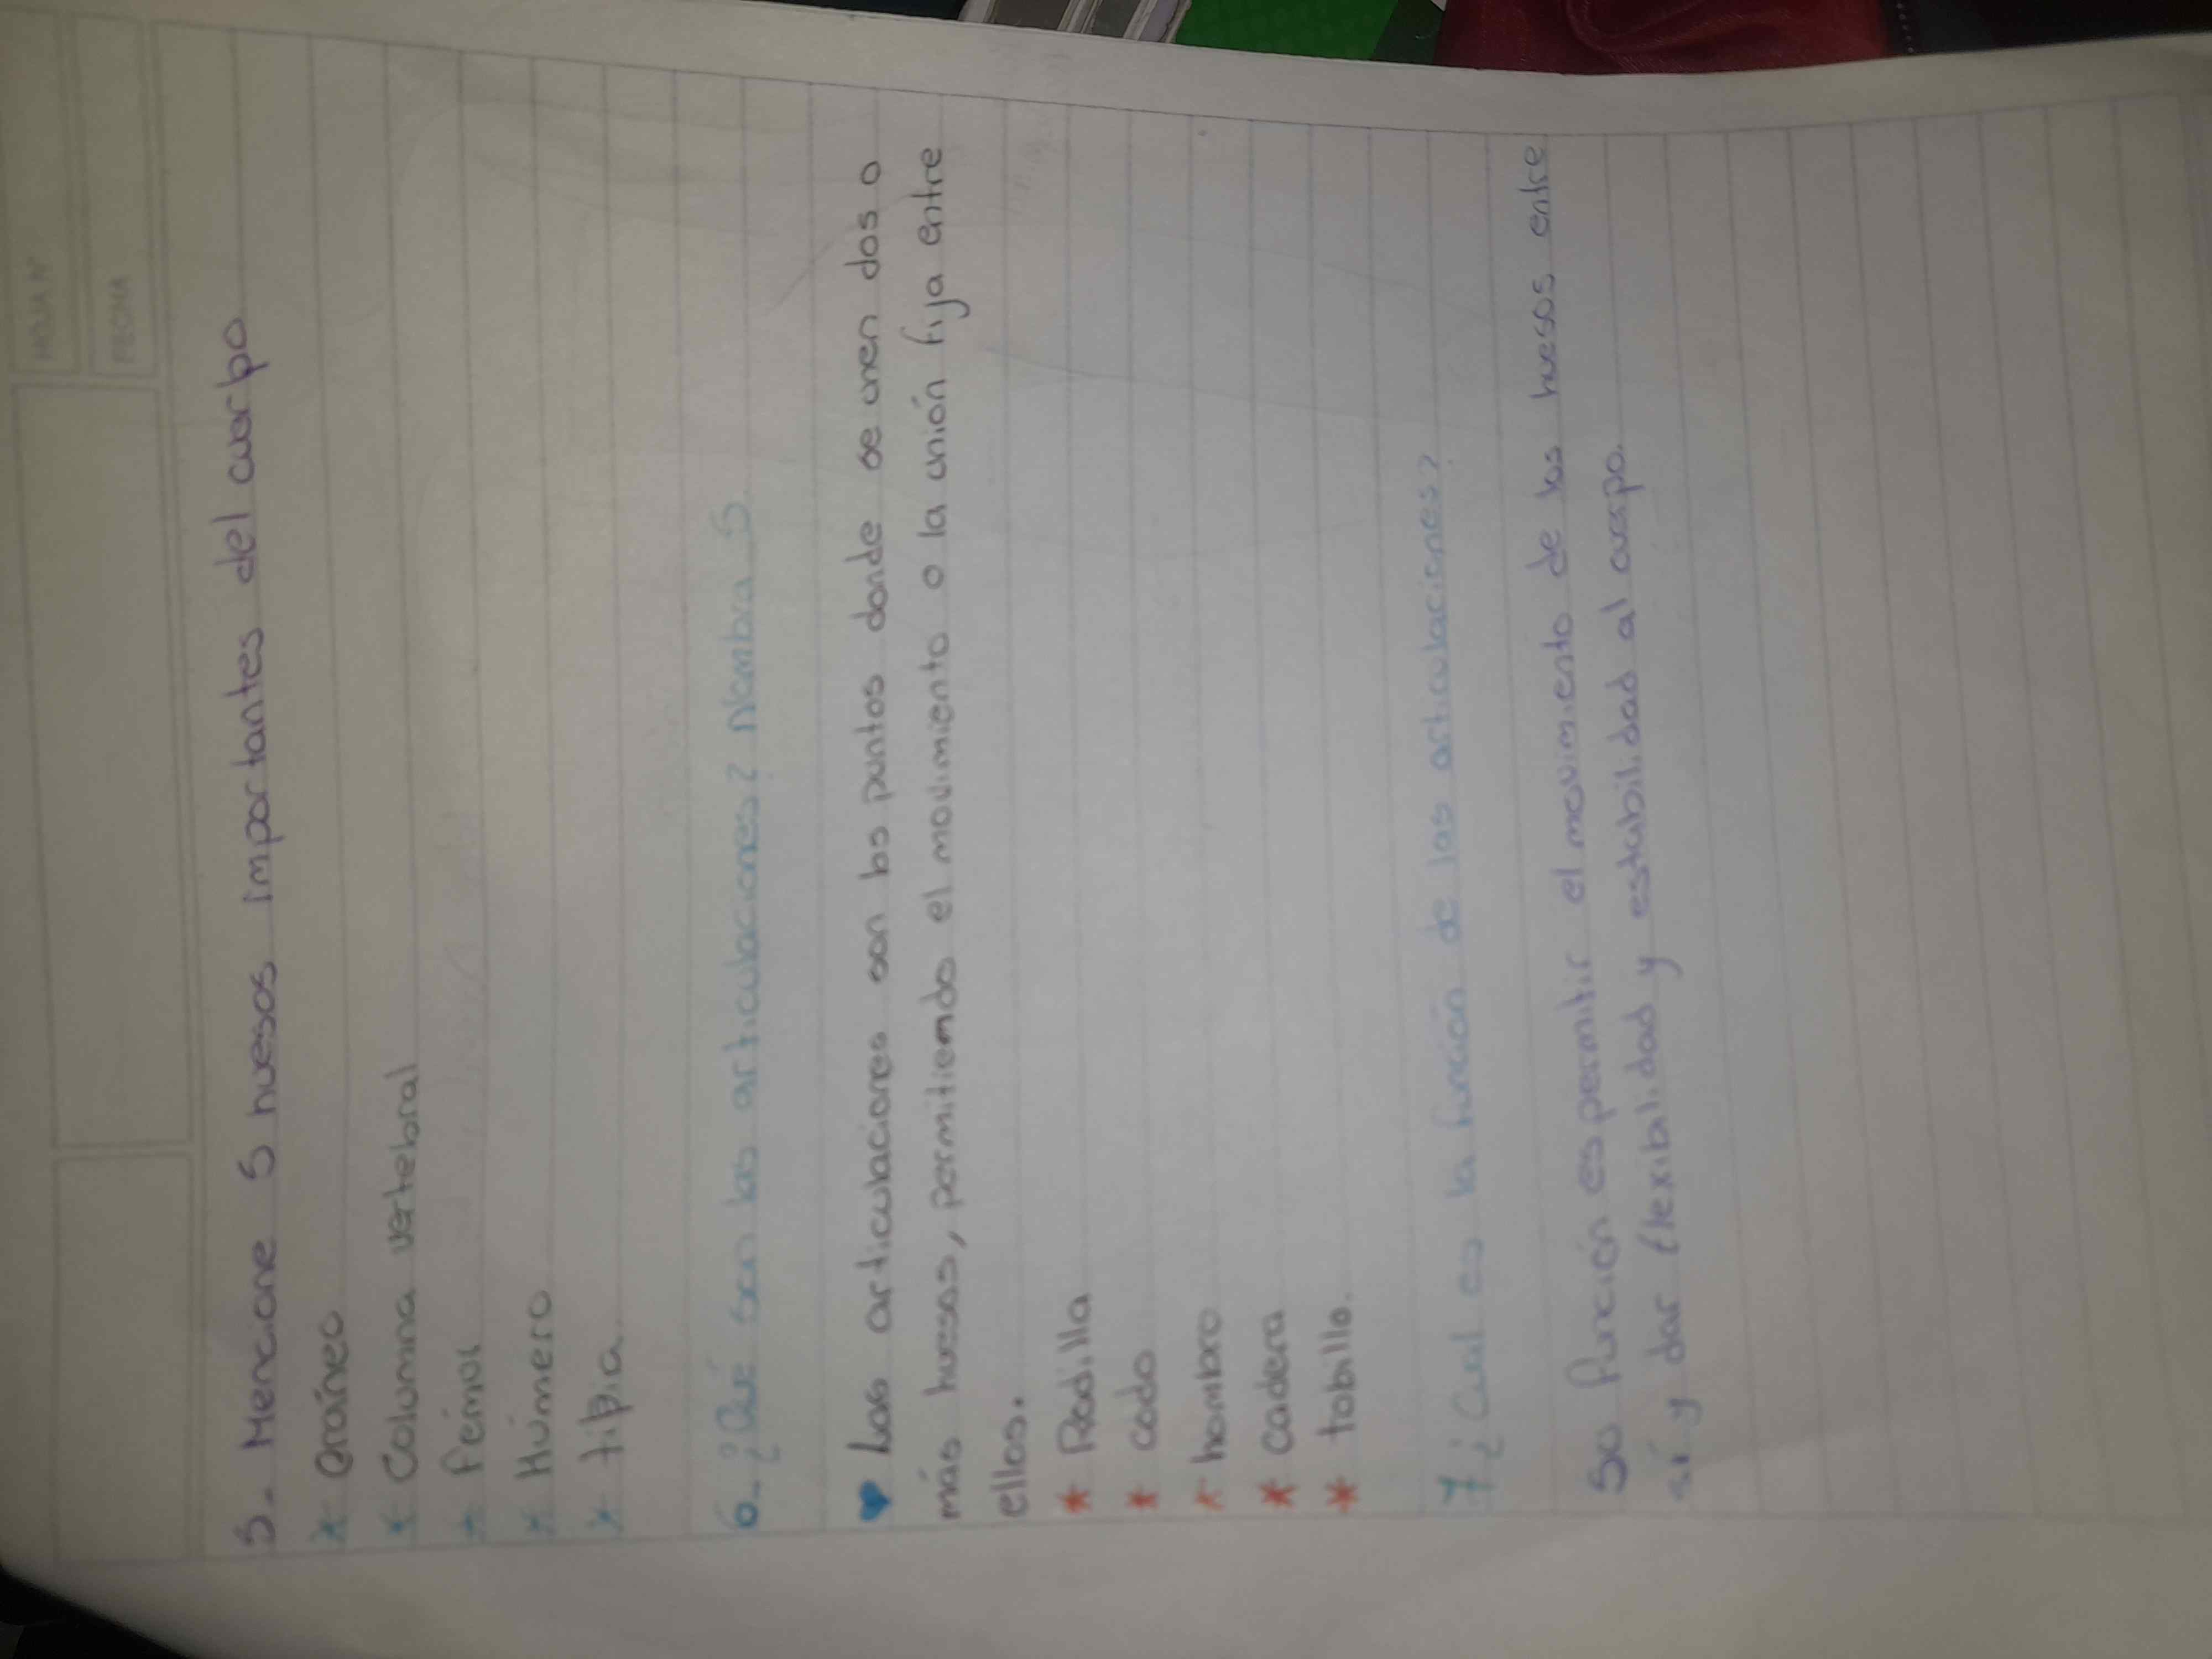 HOJA N°
FECHA
5- Mencione 5 huesos importantes del cuerpo
* Cráneo
* Columna vertebral
* Fémur
* Húmero
* tibia
6- ¿Qué son las articulaciones? Nombra 5
Las articulaciones son los puntos donde se unen dos o
más huesos, permitiendo el movimiento o la unión fija entre
ellos.
* Rodilla
* codo
* hombro
* cadera
* tobillo.
7 ¿Cual es la función de las articulaciones?
Su Función es permitir el movimiento de los huesos entre
sí y dar flexibilidad y estabilidad al cuerpo.